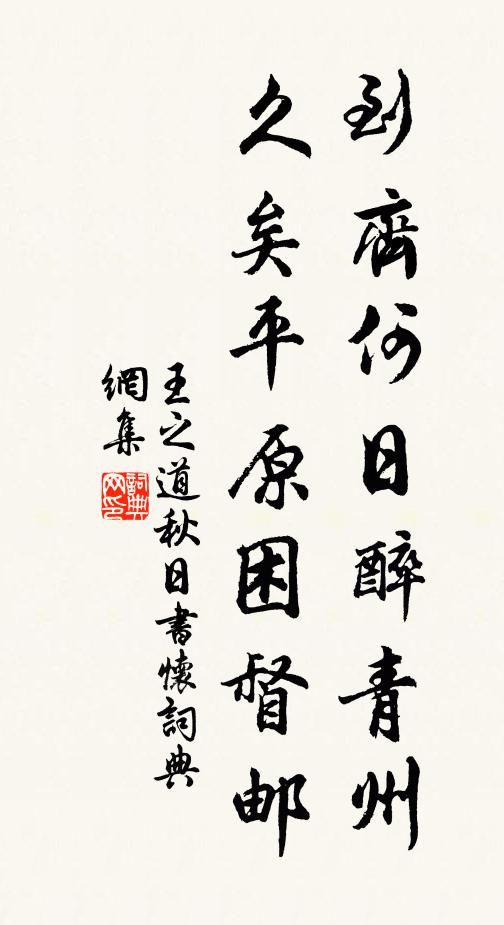 到齊何日醉青州
久矣平原困督邮
王之道秋日書懷詞典
網集
詞典
网印